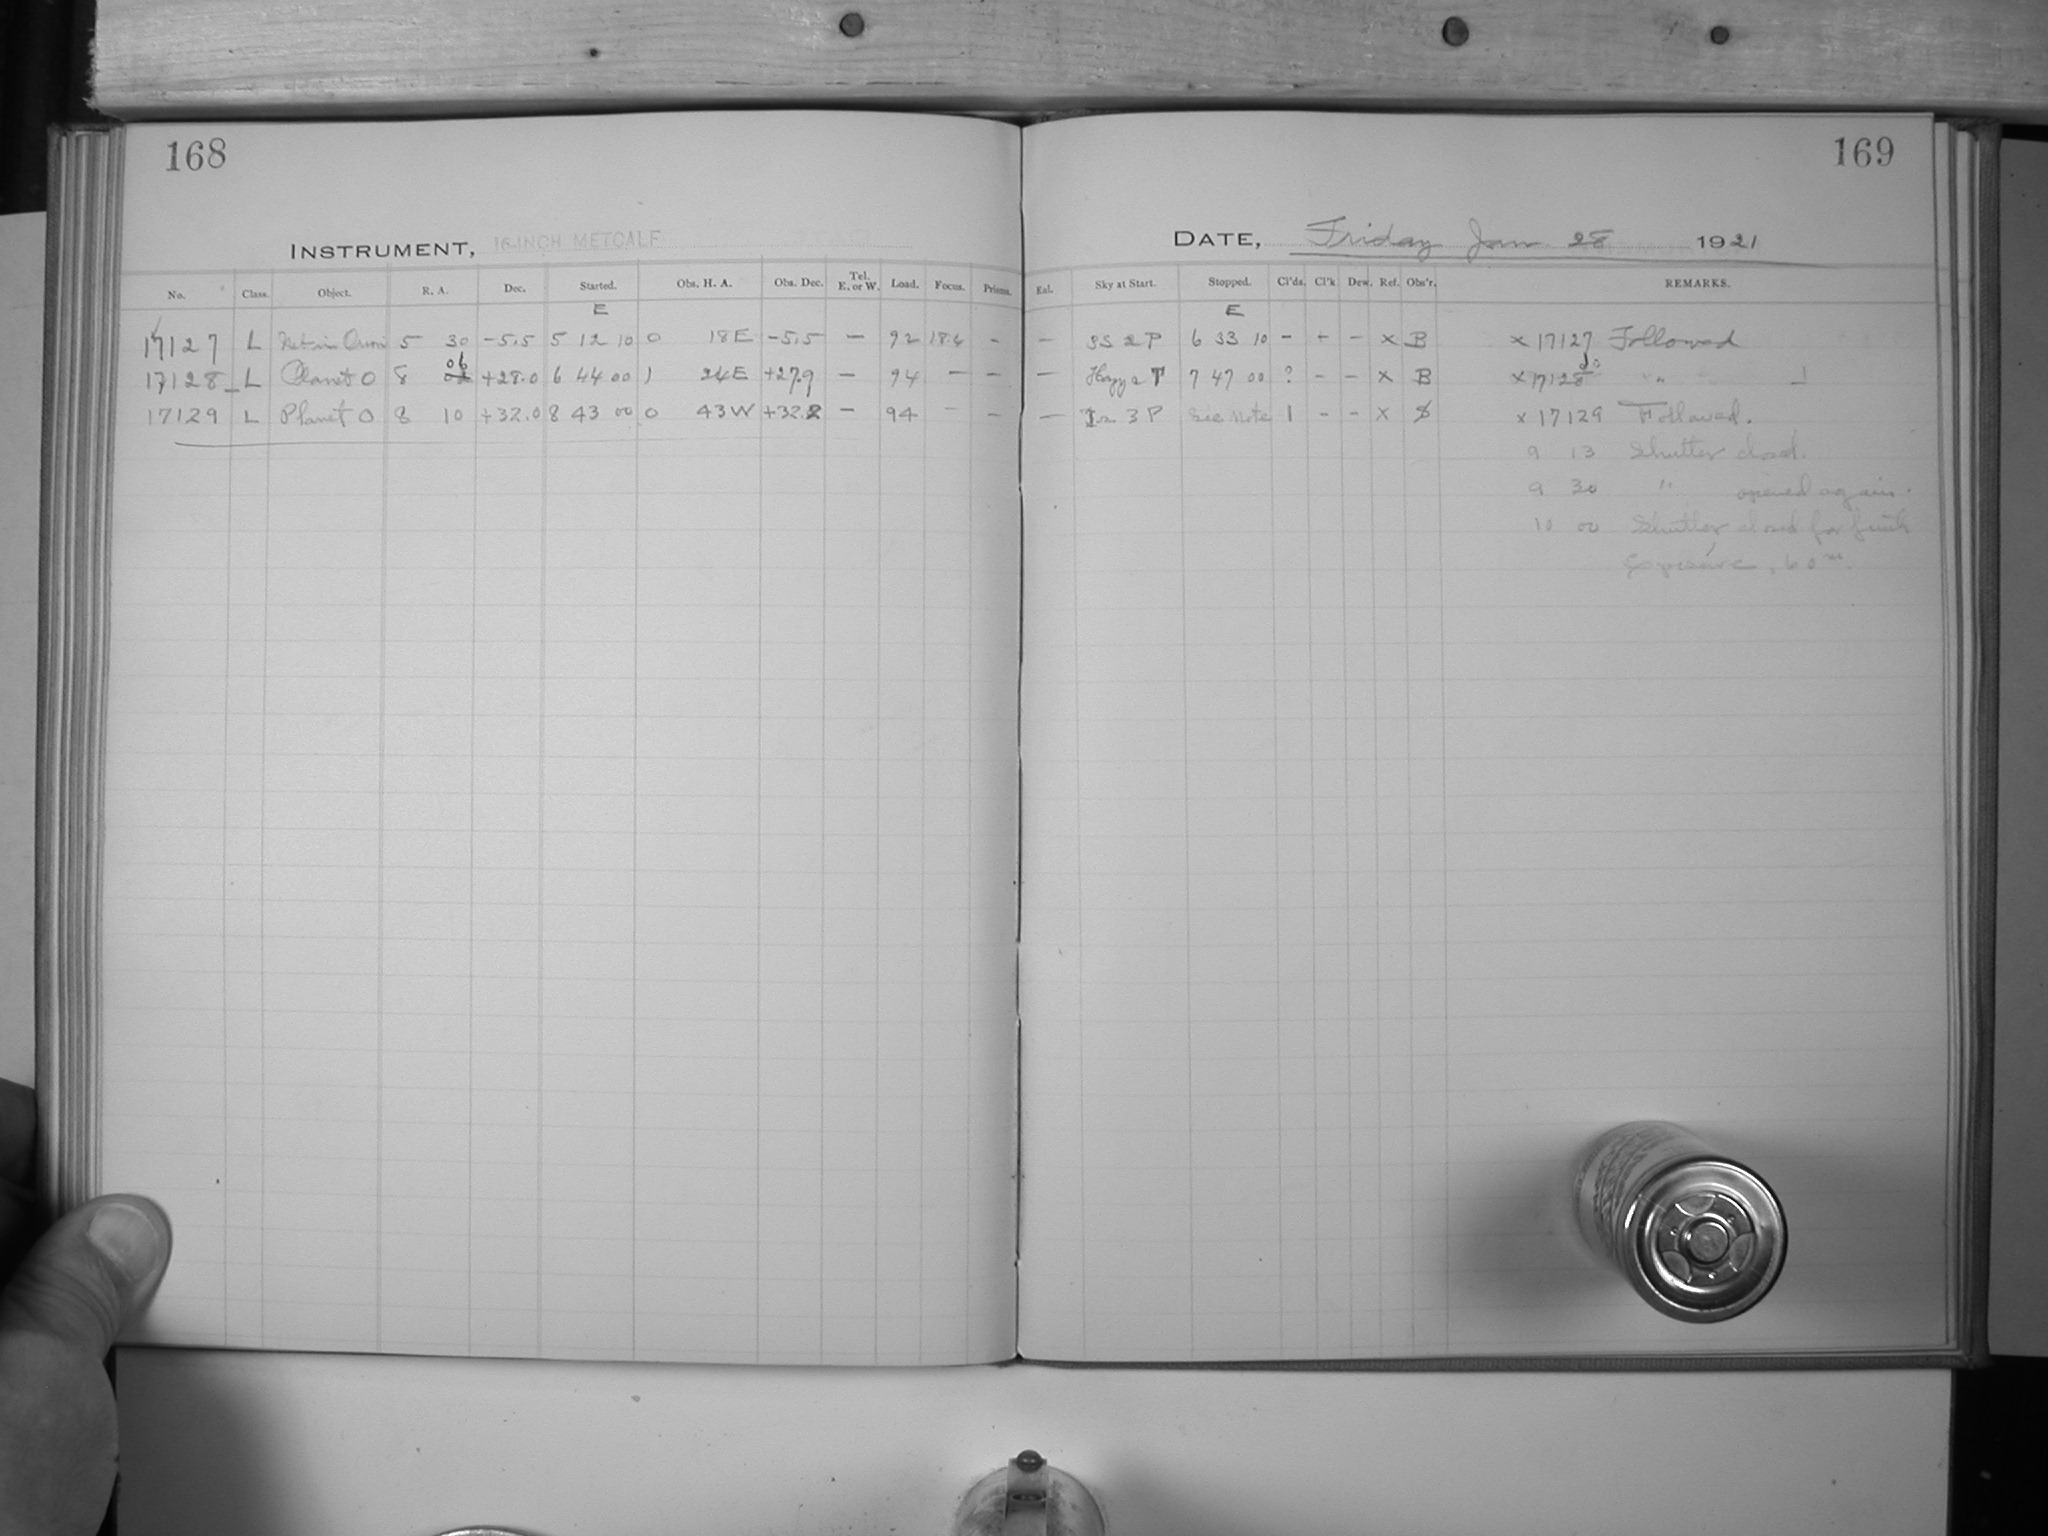 168
INSTRUMENT, 16-INCH METCALF
No. Class. Object. R. A. Dec. Started. Obs. H. A. Obs. Dec. Tel. E. or W. Load. Focus. Prisms.
E
17127 L 5 30 -5.5 5 12 10 0 18 E -5.5 — 92 18.6 -
06
17128 L Planet O 8 02 +28.0 6 44 00 1 24 E +27.9 — 94 — -
17129 L Planet O 8 10 +32.0 8 43 00 0 43 W +32.2 — 94 - -
169
DATE, Friday Jan 28 1921
Eal. Sky at Start. Stopped. Cl'ds. Cl'k Dew. Ref. Obs'r. REMARKS.
E
— 2 P 6 33 10 - + - x B x 17127 Followed
— 7 47 00 ? - - x B x 17128 do "
— 3 P See Note 1 - - x x 17129 Followed.
9 13 Shutter closed.
9 30 " opened again.
10 00 Shutter closed for
Exposure, 60m.